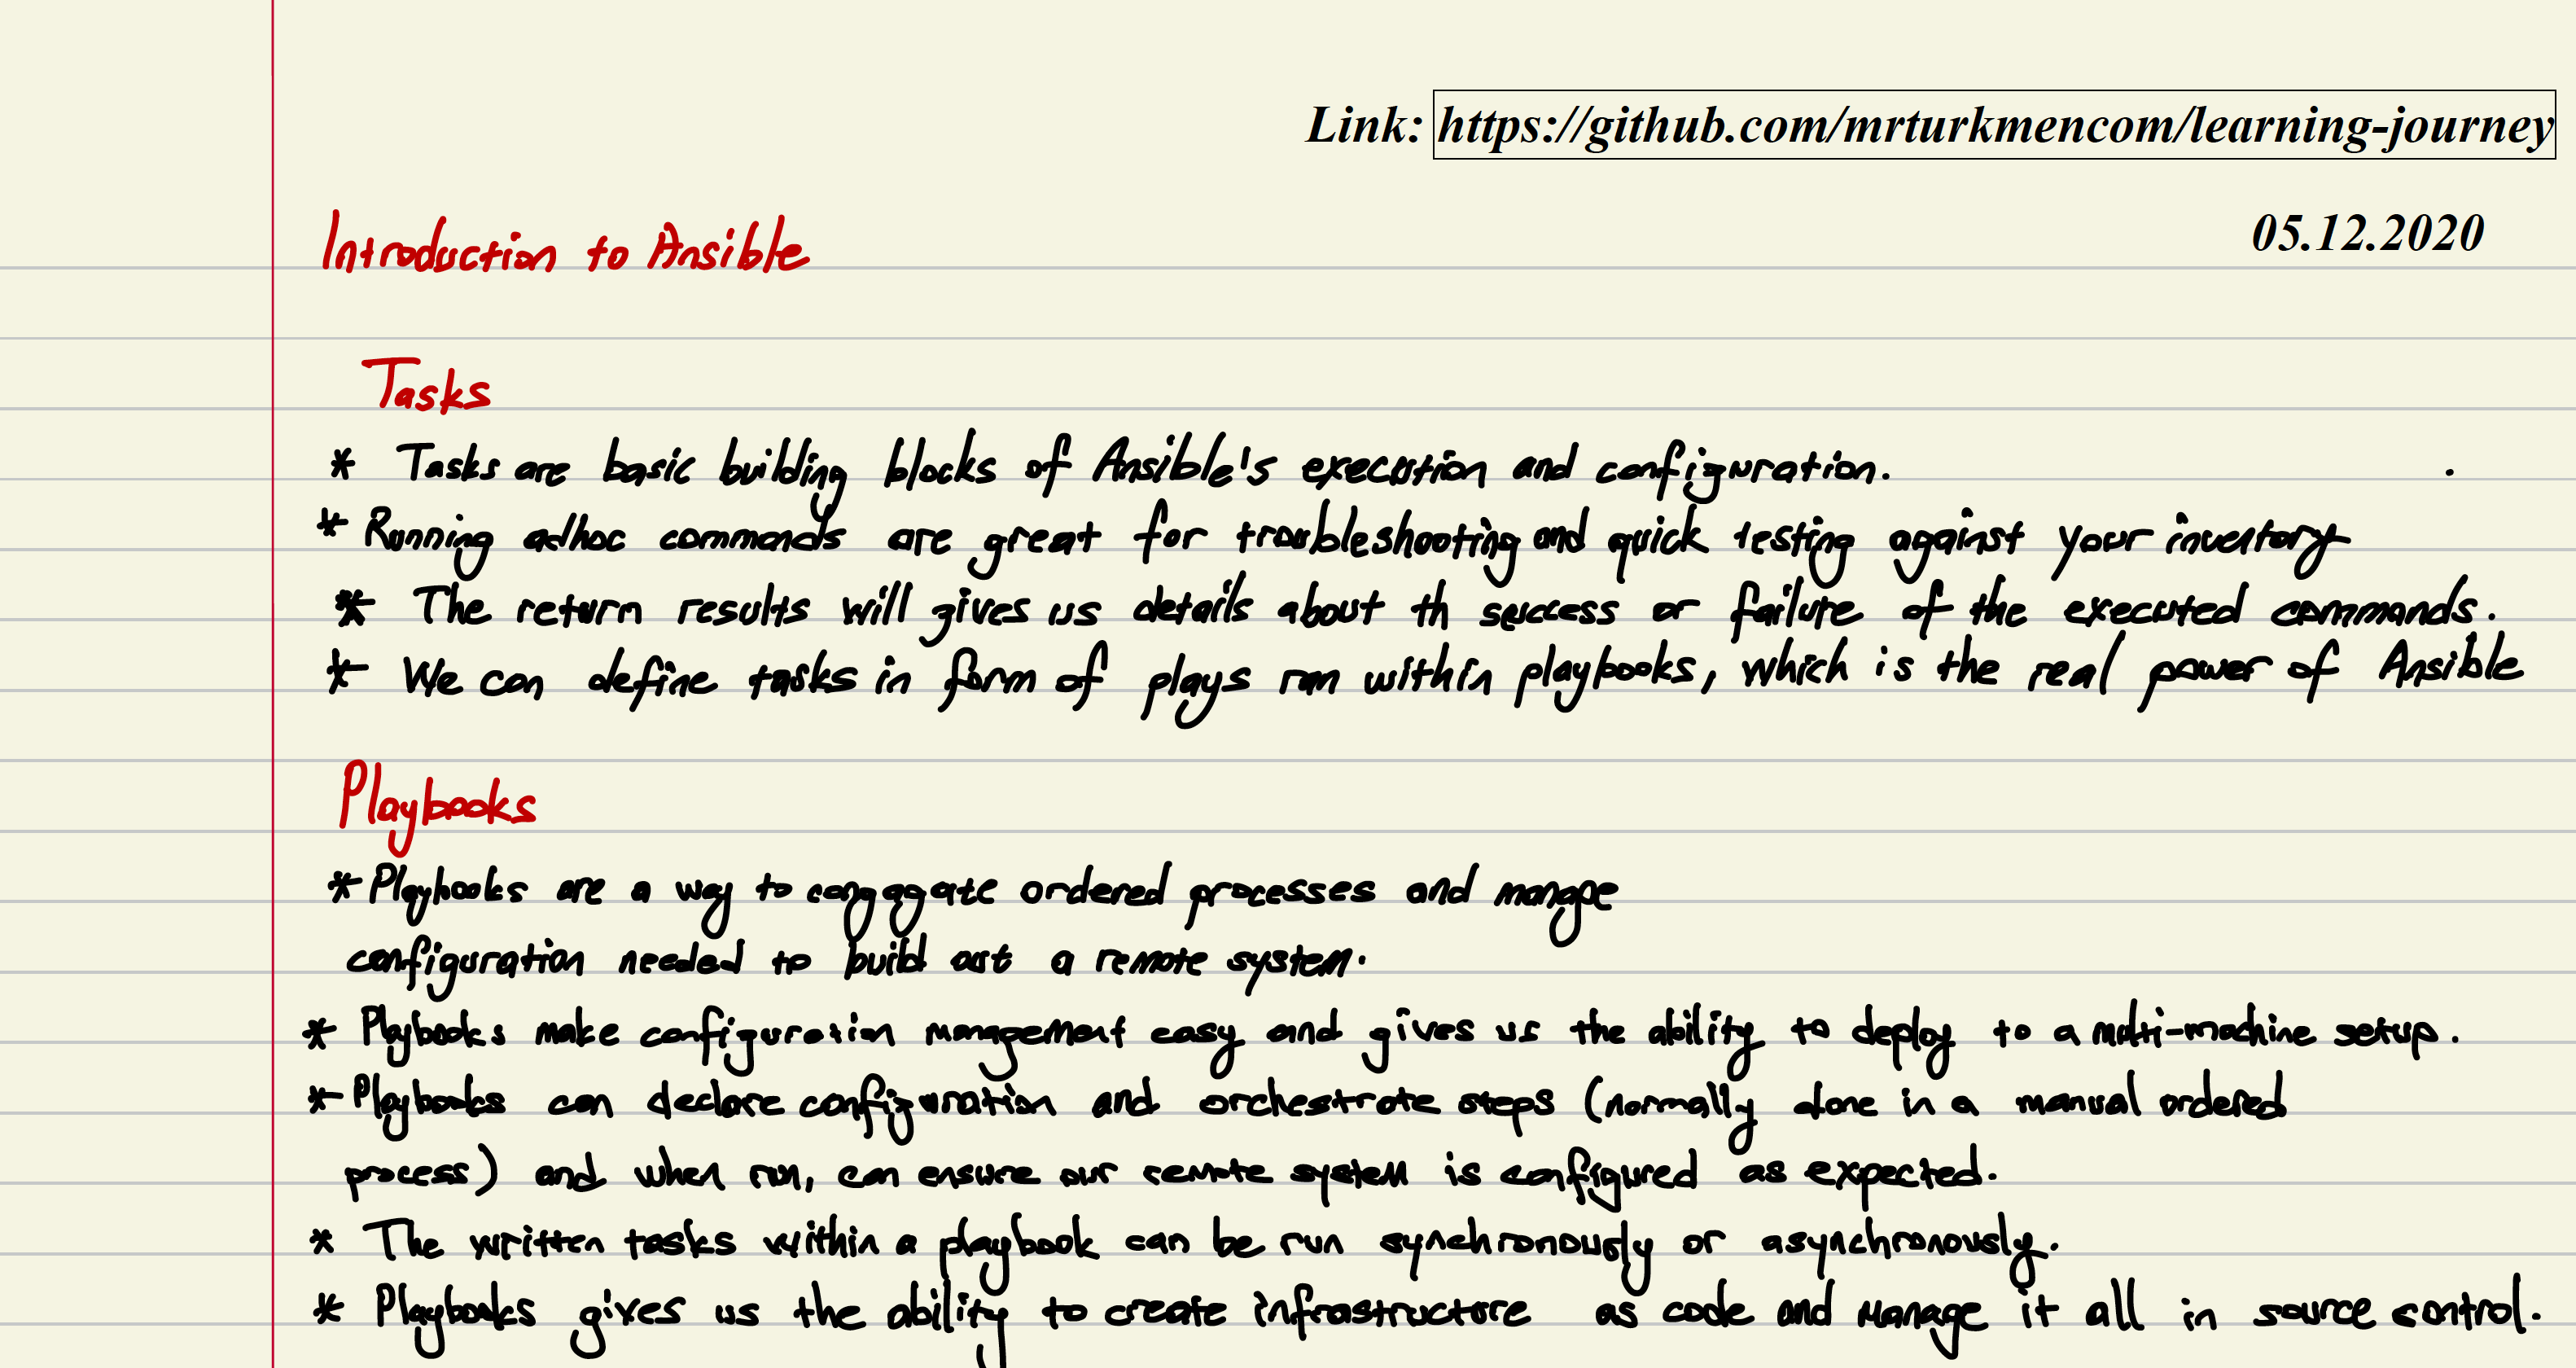 Link: https://github.com/mrturkmencom/learning-journey
Introduction to Ansible
05.12.2020
Tasks
* Tasks are basic building blocks of Ansible's execution and configuration.
* Running adhoc commands are great for troubleshooting and quick testing against your inventory
* The return results will gives us details about th success or failure of the executed commands.
* We can define tasks in form of plays ran within playbooks, which is the real power of Ansible
Playbooks
* Playbooks are a way to ordered processes and manage
configuration needed to build out a remote system.
* Playbooks make configuration management easy and gives us the ability to deploy to a multi-machine setup.
* Playbooks can declare configuration and orchestrate steps (normally done in a manual ordered
process) and when run, can ensure our remote system is configured as expected.
* The written tasks within a playbook can be run synchronously or asynchronously.
* Playbooks gives us the ability to create infrastructure as code and manage it all in source control.